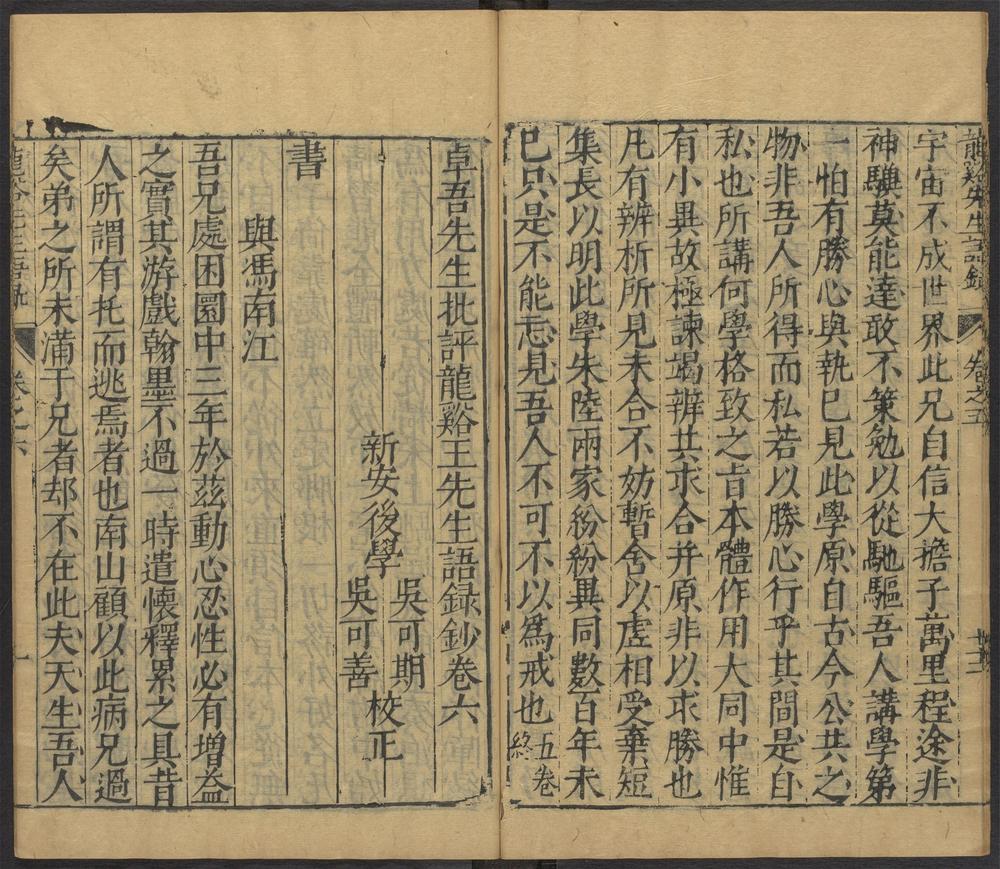 龍谿先生語錄 卷之五
宇宙不成世界此兄自信大擔子萬里程途非
神驥莫能達敢不策勉以從馳驅吾人講學第
一怕有勝心與執已見此學原自古今公共之
物非吾人所得而私若以勝心行乎其間是自
私也所講何學格致之旨本體作用大同中惟
有小異故極諫竭辨共求合并原非以求勝也
凡有辨析所見未合不妨暫舍以虛相受棄短
集長以明此學朱陸兩家紛紛異同數百年未
已只是不能忘見吾人不可不以爲戒也 五卷終
卓吾先生批評龍谿王先生語録鈔卷六
新安後學 吳可期 校正
吳可善
書
與馮南江
吾兄處困圜中三年於茲動心忍性必有增益
之實其游戲翰墨不過一時遣懷釋累之具昔
人所謂有托而逃焉者也南山顧以此病兄過
矣弟之所未滿于兄者却不在此夫天生吾人
龍谿先生語錄 卷之六 一